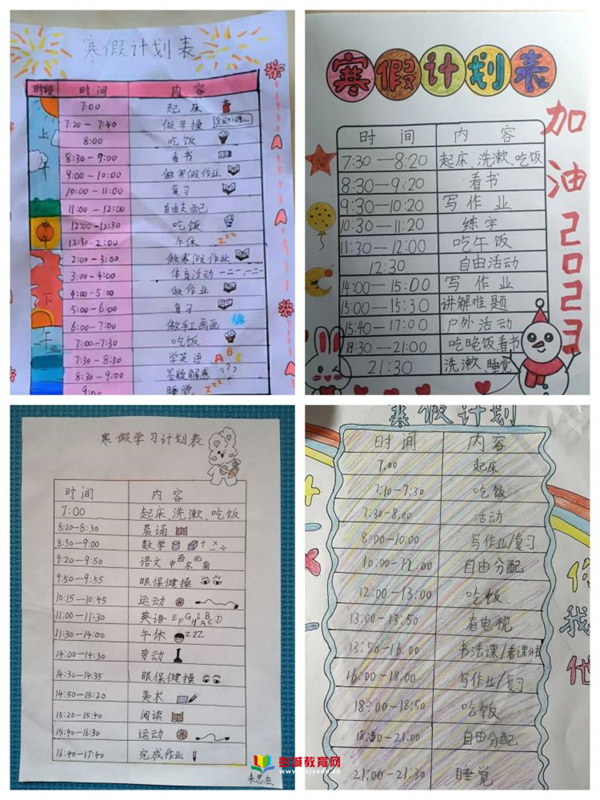 寒假计划表
时段 时间 内容
上
7:00 起床
7:20-7:40 做早操
8:00 吃饭
8:30-9:00 看书
9:00-10:00 做寒假作业
10:00-11:00 复习
11:00-12:00 自由支配
12:00-12:30 吃饭
12:30-2:00 午休 zzz
2:00-3:00 做寒假作业
3:00-4:00 体育活动
下
4:00-5:00 做作业
5:00-6:00 复习
6:00-7:00 做手工画画
午
7:00-7:30 吃饭
7:30-8:30 学英语 ABC
8:30-9:00
9:00 睡觉
寒假计划表
加油2023
时间 内容
7:30-8:20 起床 洗漱 吃饭
8:30-9:20 看书
9:30-10:20 写作业
10:30-11:20 练字
11:30-12:00 吃午饭
12:30 自由活动
14:00-15:00 写作业
15:00-15:30 讲解难题
15:40-17:00 户外活动
18:30-21:00 吃晚饭看书
21:30 洗漱 睡觉
寒假学习计划表
时间 内容
7:00 起床、洗漱、吃饭
8:20-8:30 晨诵
8:30-9:00 数学
9:20-9:50 语文
9:50-9:55 眼保健操
10:15-10:45 运动
11:00-11:30 英语
11:30-14:00 午休 zzz
14:00-14:30 劳动
14:30-14:35 眼保健操
14:50-15:20 美术
15:20-15:40 阅读
15:40-16:30 运动
16:40-17:40 完成作业
寒假计划
时间 内容
7:00 起床
7:10-7:30 吃饭
7:30-8:00 活动
8:00-10:00 写作业/复习
10:00-12:00 自由分配
12:00-13:00 吃饭
13:00-13:50 看电视
13:50-16:00 书法课/看课外书
16:00-18:00 写作业/复习
18:00-18:50 吃饭
18:50-21:00 自由分配
21:00-21:30 睡觉
你
我
他
彭城教育网